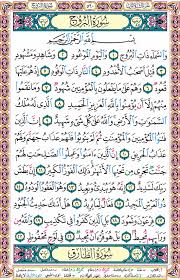 سُورَةُ البُرُوجِ
بِسْمِ ٱللَّهِ ٱلرَّحْمَٰنِ ٱلرَّحِيمِ
وَٱلسَّمَآءِ ذَاتِ ٱلْبُرُوجِ ١ وَٱلْيَوْمِ ٱلْمَوْعُودِ ٢ وَشَاهِدٍ وَمَشْهُودٍ
٣ قُتِلَ أَصْحَٰبُ ٱلْأُخْدُودِ ٤ ٱلنَّارِ ذَاتِ ٱلْوَقُودِ ٥ إِذْ هُمْ عَلَيْهَا
قُعُودٌ ٦ وَهُمْ عَلَىٰ مَا يَفْعَلُونَ بِٱلْمُؤْمِنِينَ شُهُودٌ ٧ وَمَا نَقَمُوا۟
مِنْهُمْ إِلَّآ أَن يُؤْمِنُوا۟ بِٱللَّهِ ٱلْعَزِيزِ ٱلْحَمِيدِ ٨ ٱلَّذِى لَهُۥ مُلْكُ
ٱلسَّمَٰوَٰتِ وَٱلْأَرْضِ وَٱللَّهُ عَلَىٰ كُلِّ شَىْءٍ شَهِيدٌ ٩ إِنَّ ٱلَّذِينَ
فَتَنُوا۟ ٱلْمُؤْمِنِينَ وَٱلْمُؤْمِنَٰتِ ثُمَّ لَمْ يَتُوبُوا۟ فَلَهُمْ عَذَابُ جَهَنَّمَ وَلَهُمْ
عَذَابُ ٱلْحَرِيقِ ١٠ إِنَّ ٱلَّذِينَ ءَامَنُوا۟ وَعَمِلُوا۟ ٱلصَّٰلِحَٰتِ لَهُمْ
جَنَّٰتٌ تَجْرِى مِن تَحْتِهَا ٱلْأَنْهَٰرُ ذَٰلِكَ ٱلْفَوْزُ ٱلْكَبِيرُ ١١ إِنَّ بَطْشَ
رَبِّكَ لَشَدِيدٌ ١٢ إِنَّهُۥ هُوَ يُبْدِئُ وَيُعِيدُ ١٣ وَهُوَ ٱلْغَفُورُ ٱلْوَدُودُ
١٤ ذُو ٱلْعَرْشِ ٱلْمَجِيدُ ١٥ فَعَّالٌ لِّمَا يُرِيدُ ١٦ هَلْ أَتَىٰكَ حَدِيثُ
ٱلْجُنُودِ ١٧ فِرْعَوْنَ وَثَمُودَ ١٨ بَلِ ٱلَّذِينَ كَفَرُوا۟ فِى تَكْذِيبٍ ١٩ وَٱللَّهُ مِن
وَرَآئِهِم مُّحِيطٌۢ ٢٠ بَلْ هُوَ قُرْءَانٌ مَّجِيدٌ ٢١ فِى لَوْحٍ مَّحْفُوظٍۭ ٢٢
سُورَةُ الطَّارِقِ